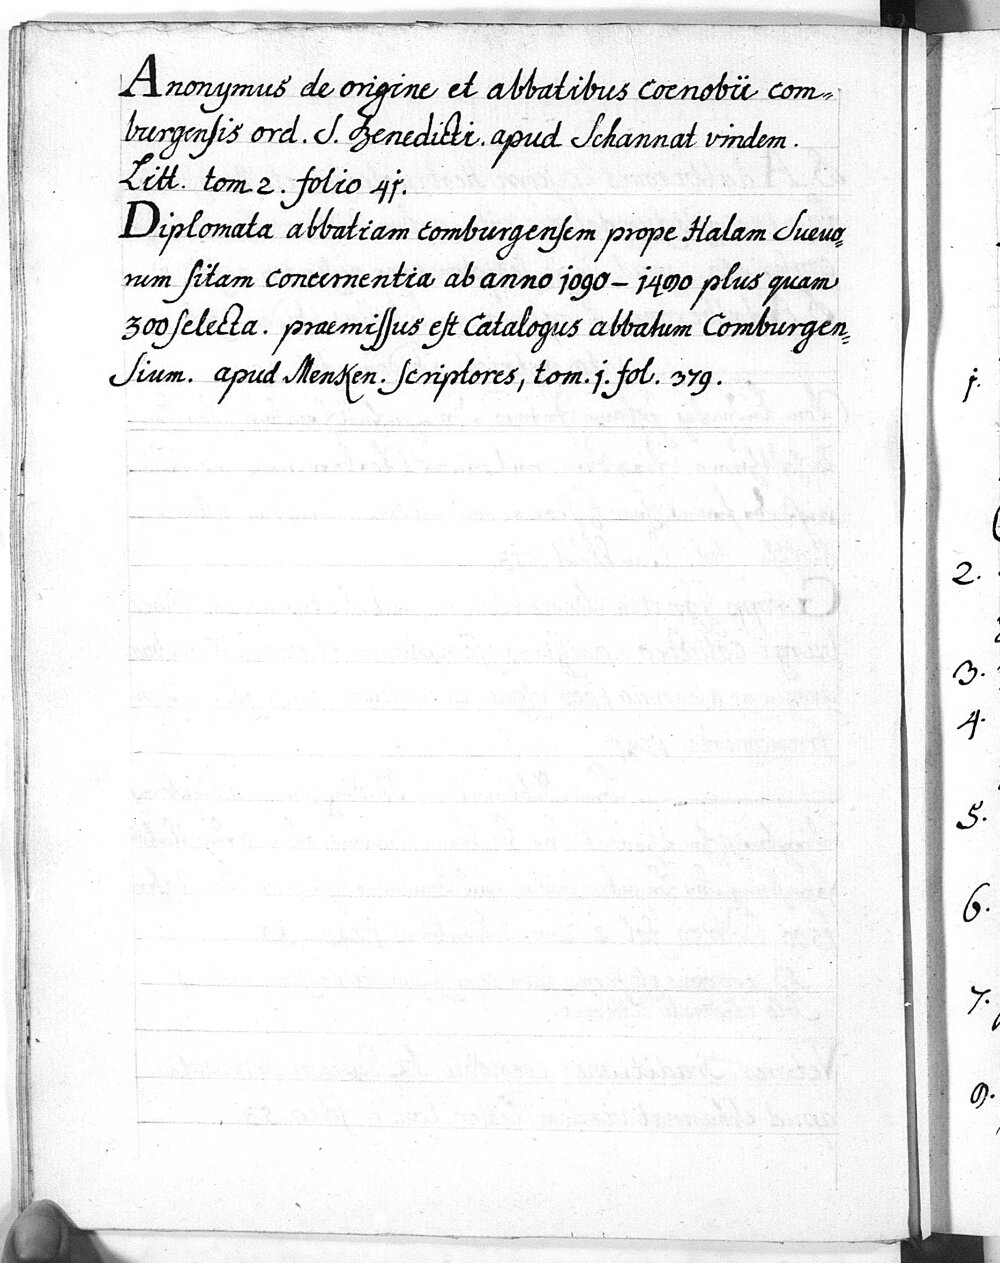 Anonymus de origine et abbatibus coenobii com=
burgensis ord. S. Benedicti. apud Schannat vindem.
Litt. tom 2. folio 41.
Diplomata abbatiam comburgensem prope Halam Suevo=
rum sitam concernentia ab anno 1090 – 1490 plus quam
300 selecta. praemissus est Catalogus abbatum Comburgen=
sium. apud Menken. Scriptores, tom. 1. fol. 379.
1.
2.
3.
4.
5.
6.
7.